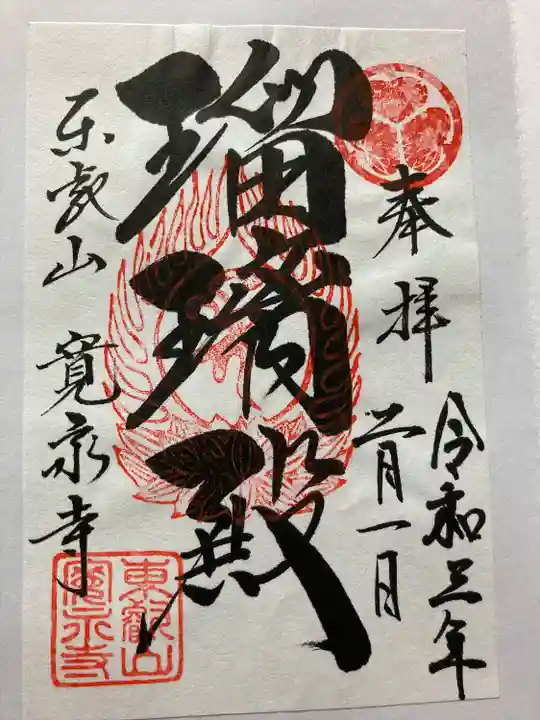 奉拝
令和三年
二月一日
瑠璃殿
東叡山 寛永寺
東叡山
寛永寺